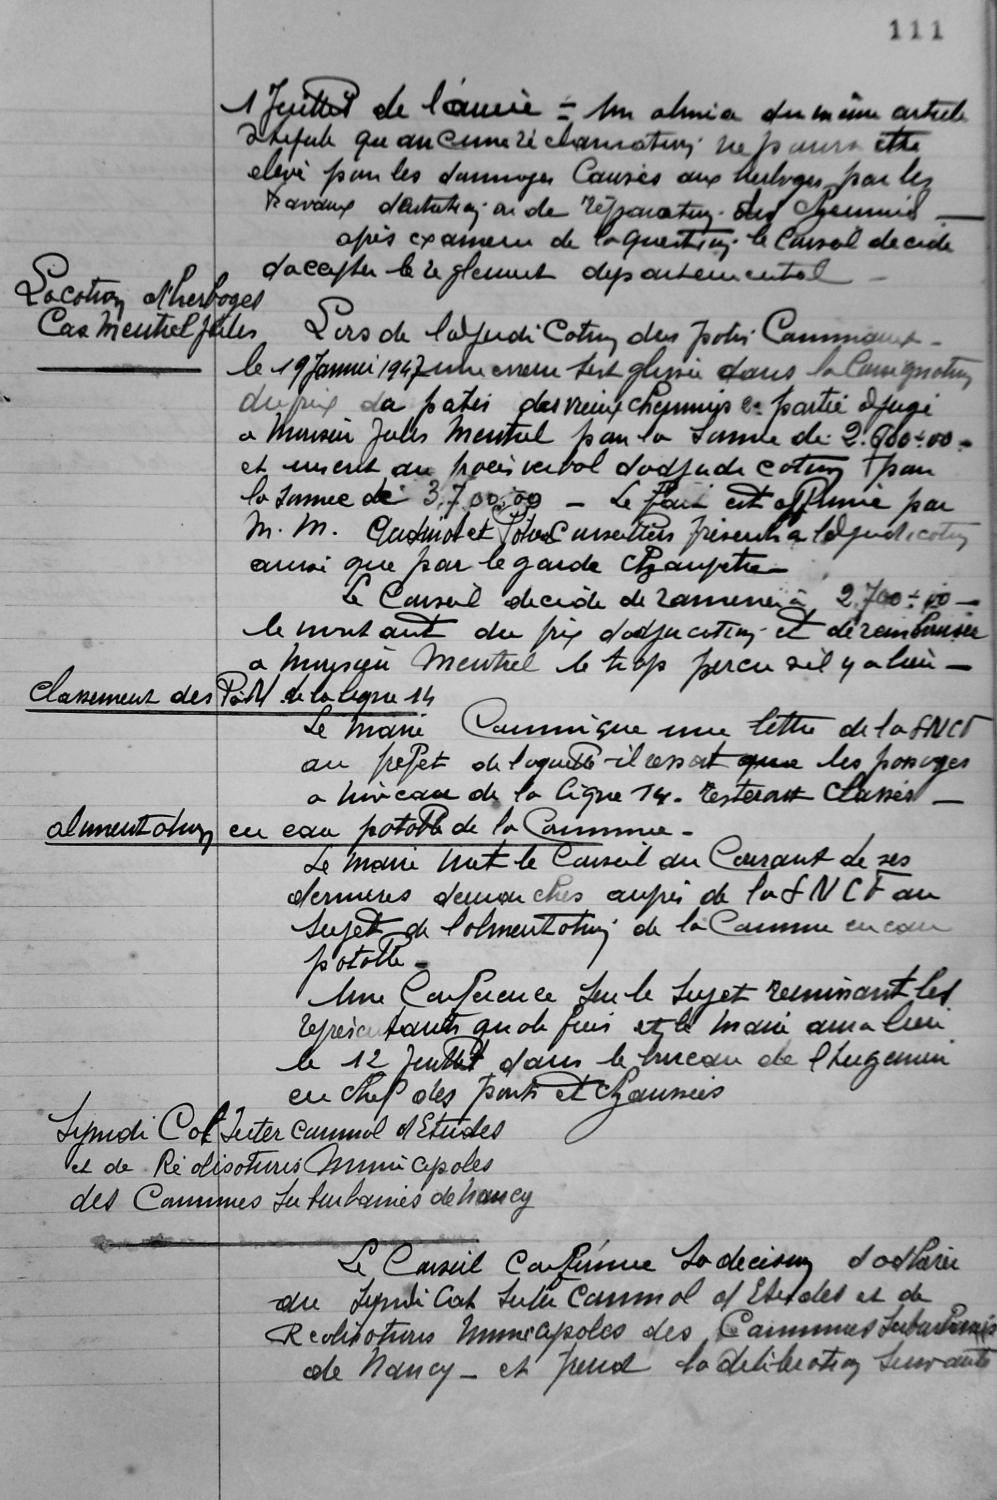 111
1 Juillet de l'année = Un alinéa du même article
stipule qu'aucune réclamation ne pourra être
élevé pour les dommages causés aux herbages par les
travaux d'entretien ou de réparation des chemins —
après examen de la question le Conseil décide
d'accepter le règlement départemental —
Location d'herbages
Cas Mentrel Jules
Lors de l'adjudication des patis Communaux -
le 19 Janvier 1947 une erreur s'est glissée dans la Consignation
du prix du patis des vieux chemins 2e partie adjugé
a Monsieur Jules Mentrel pour la somme de
et inscrit au procès verbal d'adjudication pour
la somme de 3.700,00 — Le fait est affirmé par
M. M. et Conseillers présents a l'adjudication
ainsi que par le garde champêtre —
Le Conseil décide de ramener à 2.700=00 —
le montant du prix d'adjucation et de rembourser
a Monsieur Mentrel le trop perçu s'il y a lieu —
Classement des P à N de la ligne 14
Le Maire Communique une lettre de la SNCF
au préfet de laquelle il ressort que les passages
a niveau de la ligne 14. resteront classés —
alimentation en eau potable de la Commune -
Le Maire met le Conseil au Courant de ses
dernières démarches auprès de la SNCF au
sujet de l'alimentation de la Commune en eau
potable -
Une Conférence sur le sujet réunissant les
représentants et le Maire aura lieu
le 12 Juillet dans le bureau de l'Ingénieur
en Chef des ponts et chaussées
Syndicat Inter communal d'Etudes
et de Réalisations Municipales
des Communes Suburbaines de Nancy
Le Conseil Confirme sa décision d'adhérer
au Syndicat Inter Communal d'Etudes et de
Réalisations Municipales des Communes Suburbaines
de Nancy — et prend la délibération suivante